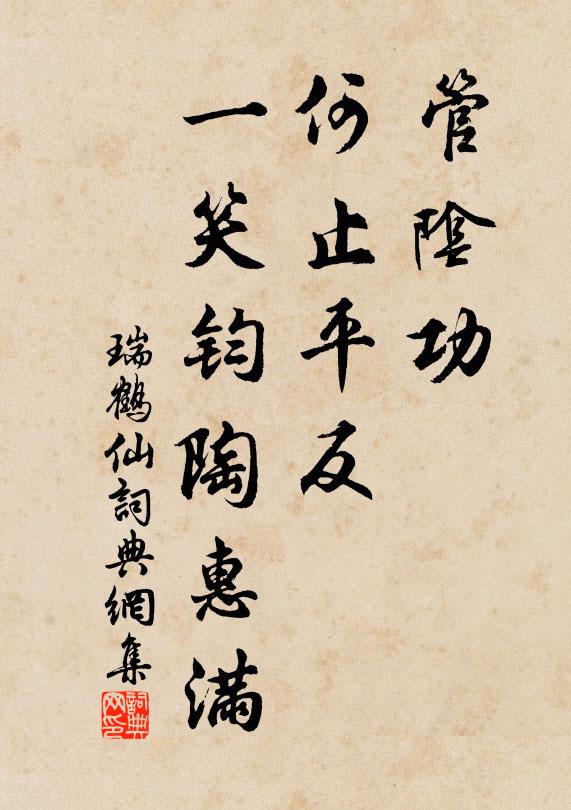 管陰功
何止平反
一笑鈞陶惠滿
瑞鶴仙詞典網集
詞典
网印